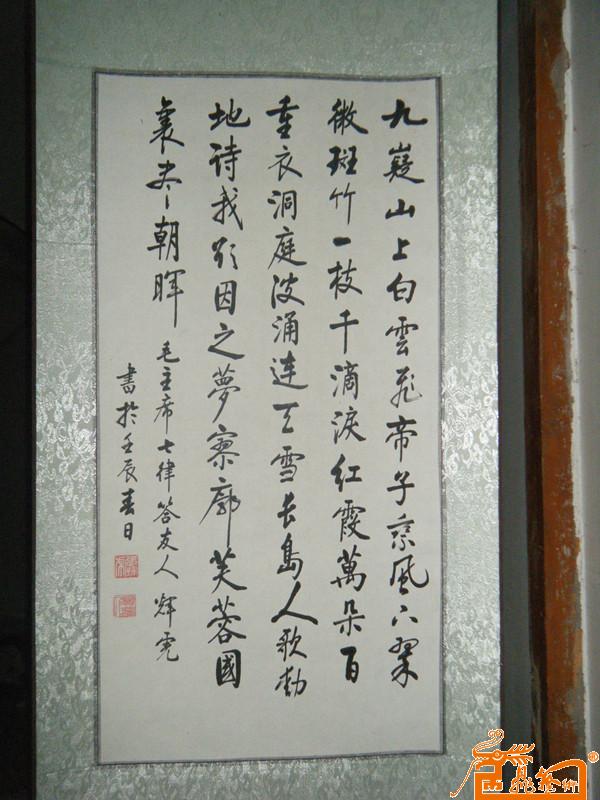 九嶷山上白雲飛帝子乘風下翠
微斑竹一枝千滴淚紅霞萬朵百
重衣洞庭波涌連天雪長島人歌動
地詩我欲因之夢寥廓芙蓉國
裏尽朝暉
毛主席七律答友人 輝
書於壬辰春日